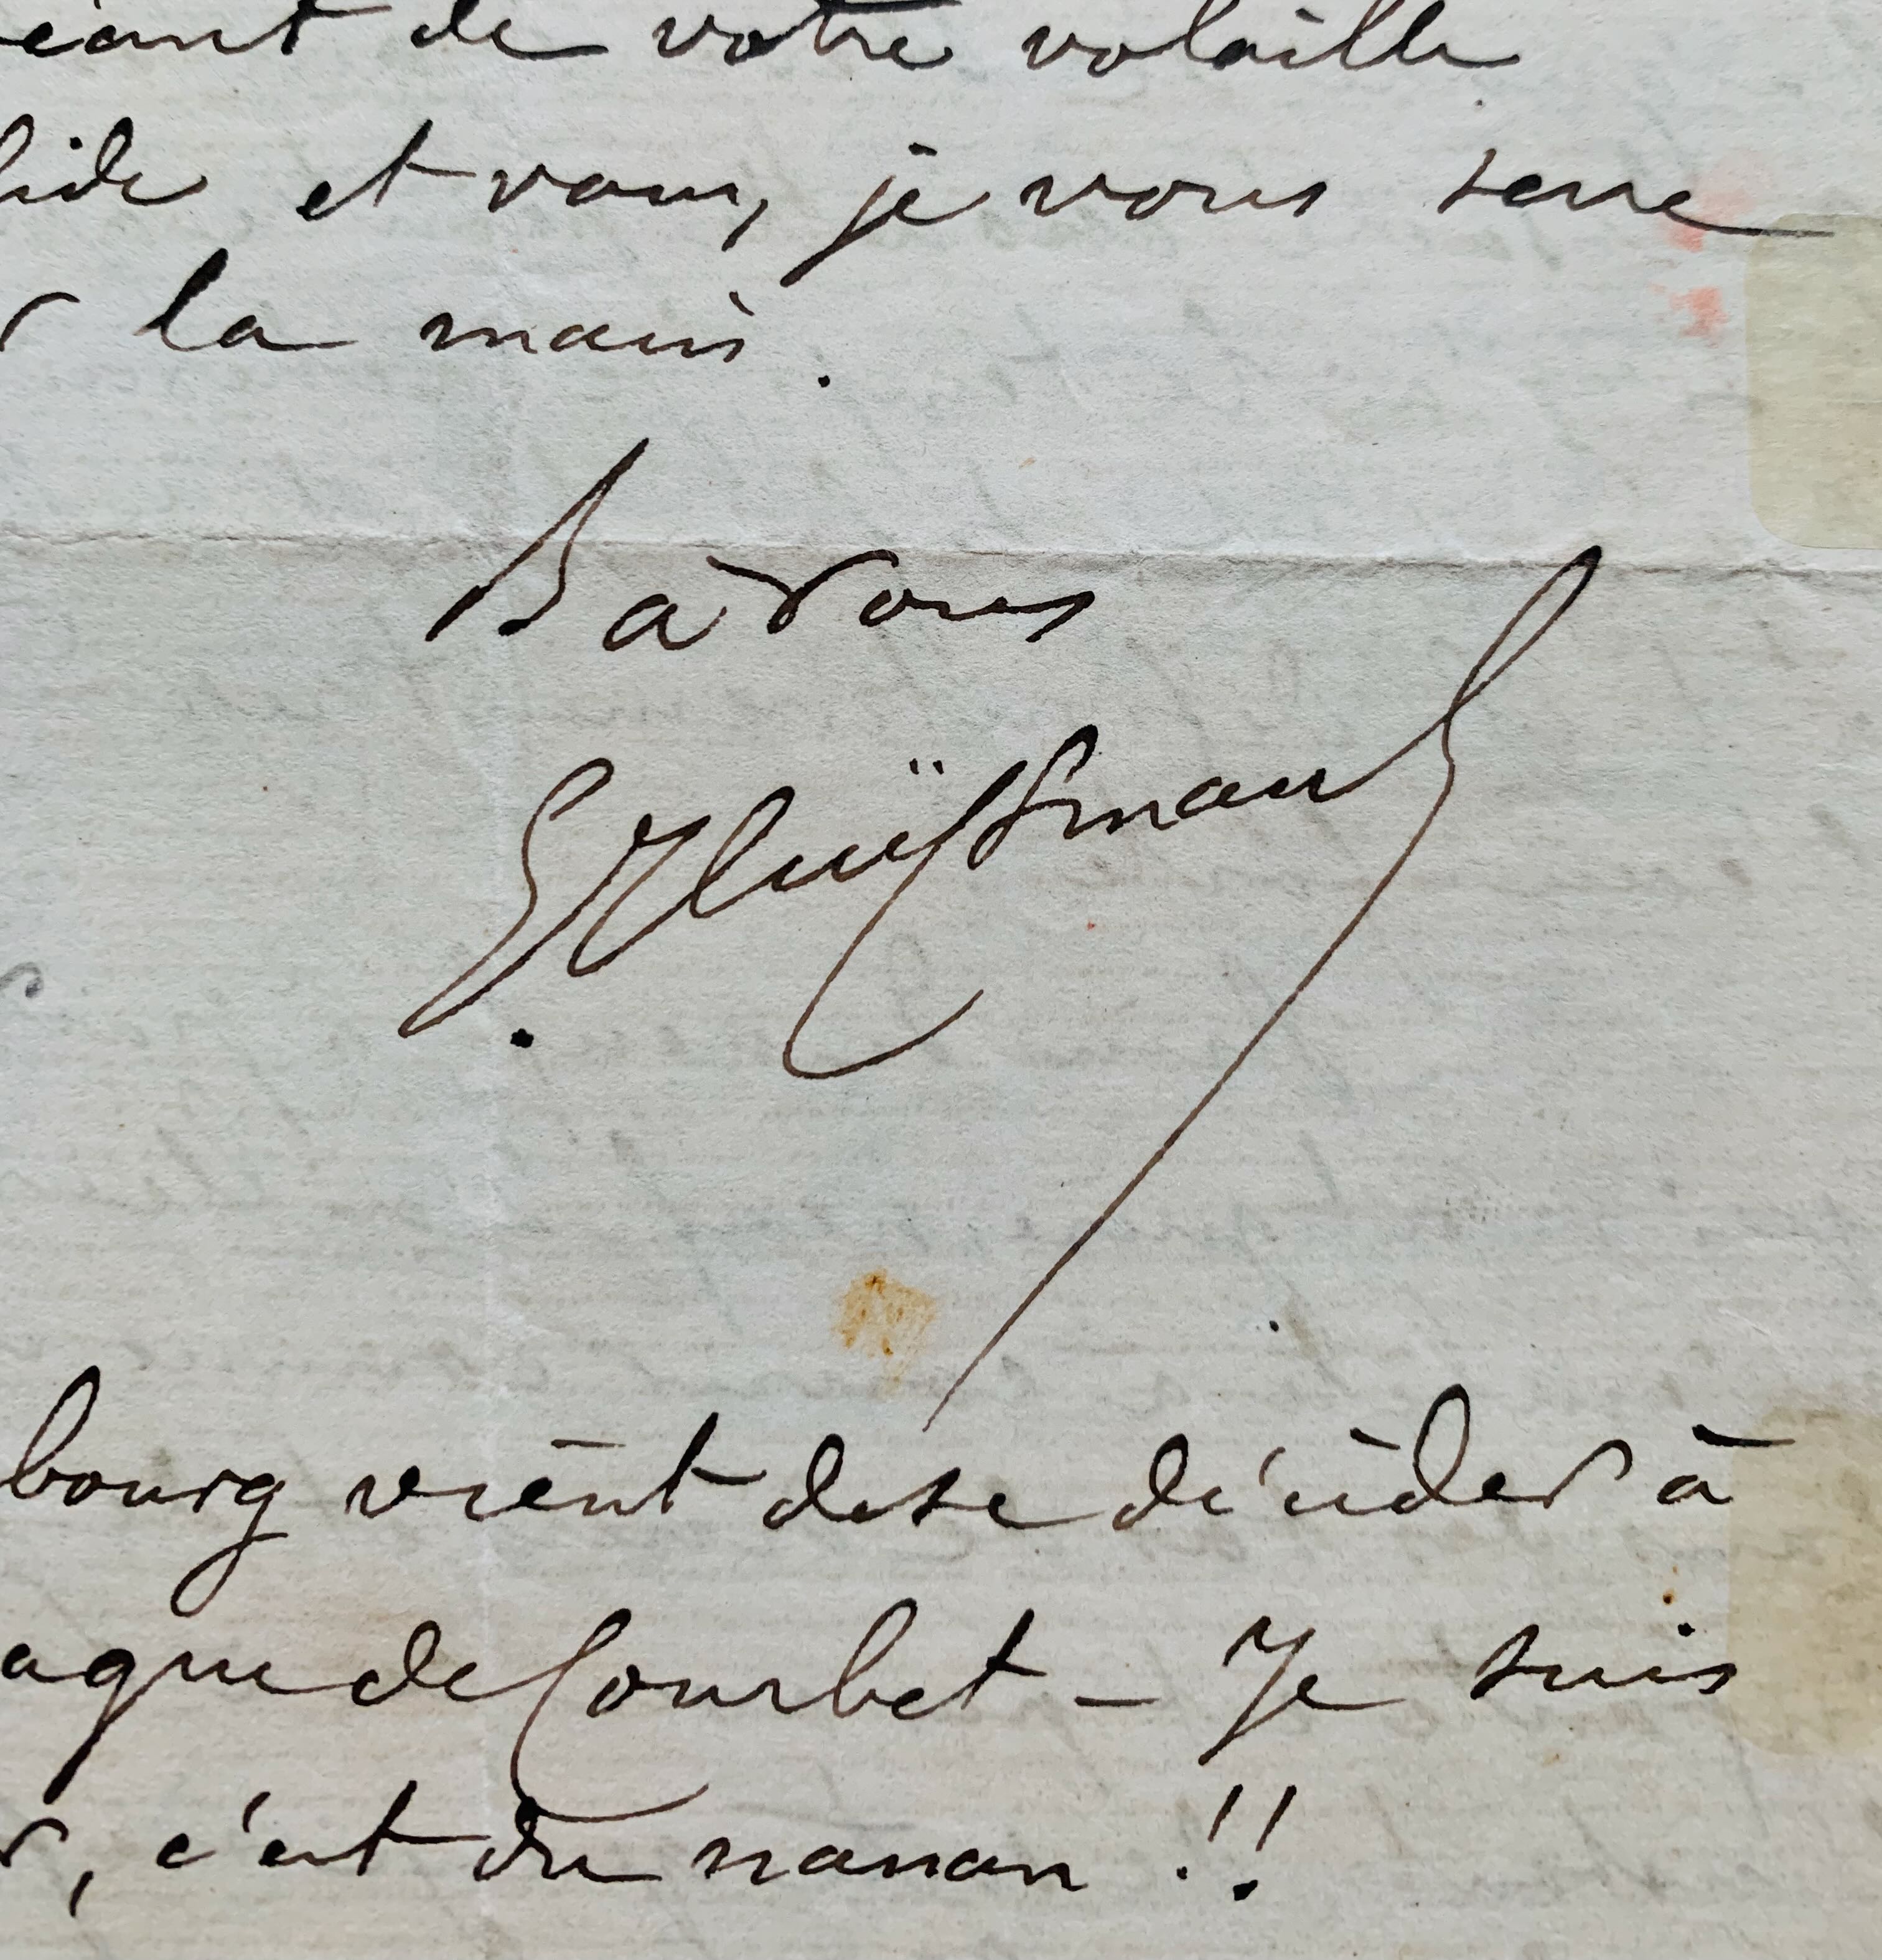 éant de votre volaille
lide et vous, je vous serre
r la main.
B à vous
G. Huÿsmans
bourg vient de se décider à
ague de Courbet – Je suis
r, c'est du nanan !!